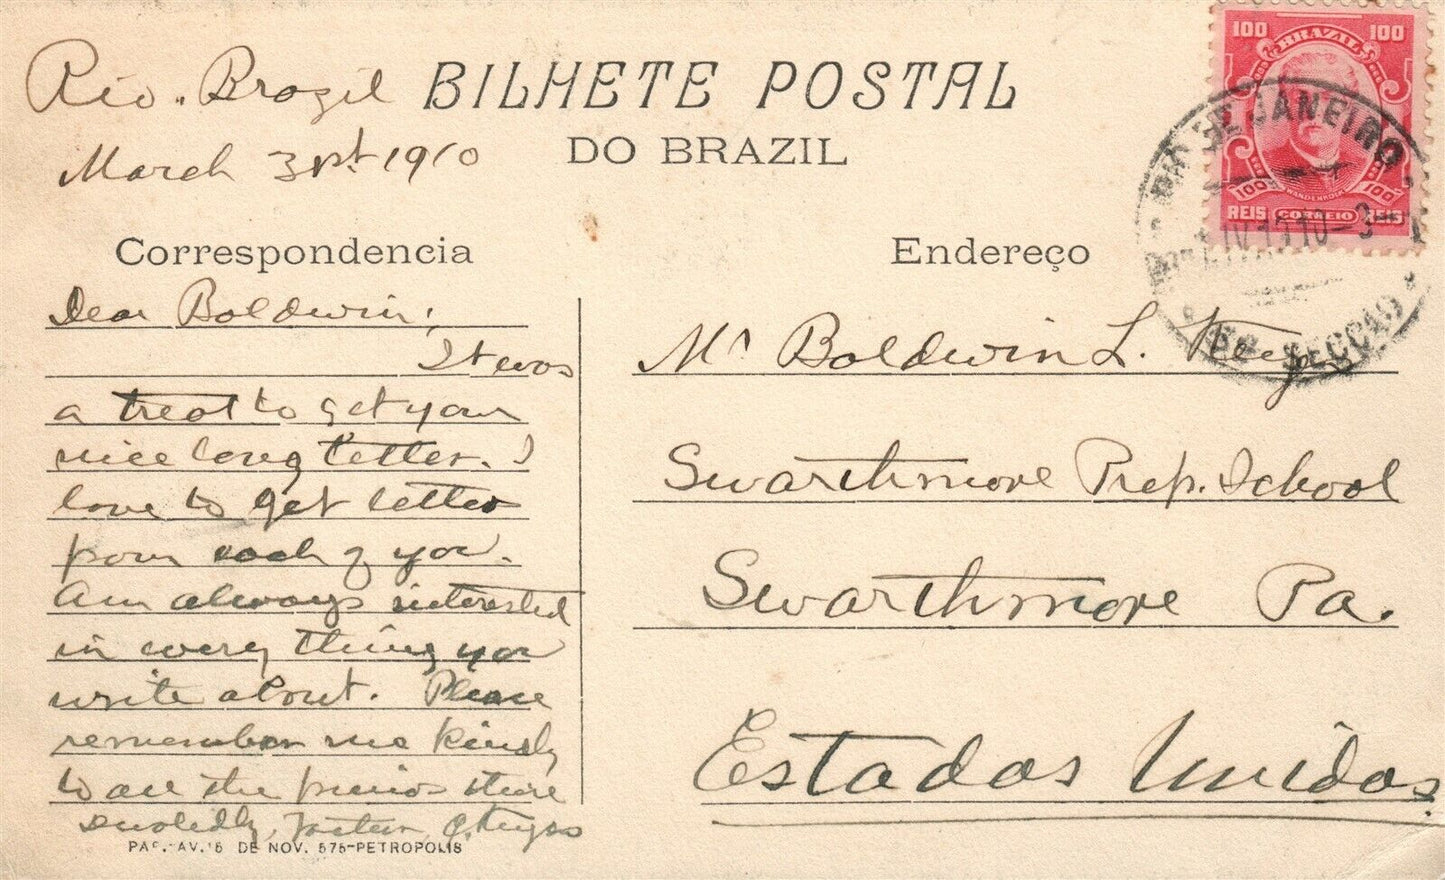 Rio. Brazil
March 31st 1910
BILHETE POSTAL
DO BRAZIL
Correspondencia
Endereço
100 BRAZIL 100
100 WANDENKOLK 100
REIS CORREIO REIS
RIO DE JANEIRO
SECCÃO
Dear Boldwin;
It was
a treat to get your
nice long letter. I
love to get letters
from each of you.
Am always interested
in every thing you
write about. Please
remember me kindly
to all the friends there
devotedly,
PAP. AV. 15 DE NOV. 575-PETROPOLIS
Mr Boldwin L. Keyes
Swarthmore Prep. School
Swarthmore Pa.
Estados Unidos